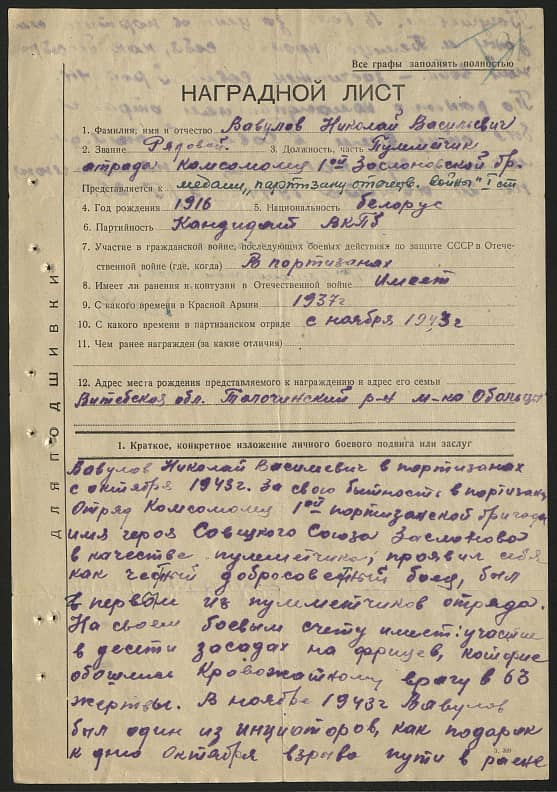 Все графы заполнять полностью
НАГРАДНОЙ ЛИСТ
1. Фамилия, имя и отчество Вавулов Николай Васильевич
2. Звание Рядовой 3. Должность, часть Пулимтчик
отряда Комсомолец 1ой Заслоновской бр.
Представляется к медали „партизану отечеств. войны" I ст
4. Год рождения 1916 5. Национальность белорус
6. Партийность Кандидат ВКПб
7. Участие в гражданской войне, последующих боевых действиях по защите СССР в Отече-
ственной войне (где, когда) В партизанах
8. Имеет ли ранения и контузии в Отечественной войне Имеет
9. С какого времени в Красной Армии 1937г
10. С какого времени в партизанском отряде с ноября 1943г
11. Чем ранее награжден (за какие отличия)
12. Адрес места рождения представляемого к награждению и адрес его семьи
Витебская обл. Талочинский р-н м-ко Обольцы
ДЛЯ ПОДШИВКИ
1. Краткое, конкретное изложение личного боевого подвига или заслуг
Вавулов Николай Васильевич в партизанах
с октября 1943г. За свою бытность в партизан
Отряд Комсомолец 1ой партизанской бригады
имя героя Совецкого Союза Заслонова
в качестве пулиметчика, проявил себя
как честный добросовестный боец, был
в первом из пулиметчиков отряда.
На своем боевым счету имеет: участие
в десяти засадах на фрицев, которые
обошлись Кровожатному врагу в 63
жертвы. В ноябре 1943г Вавулов
был один из инциоторов, как подарок
к дню Октября взрыва пути в раене